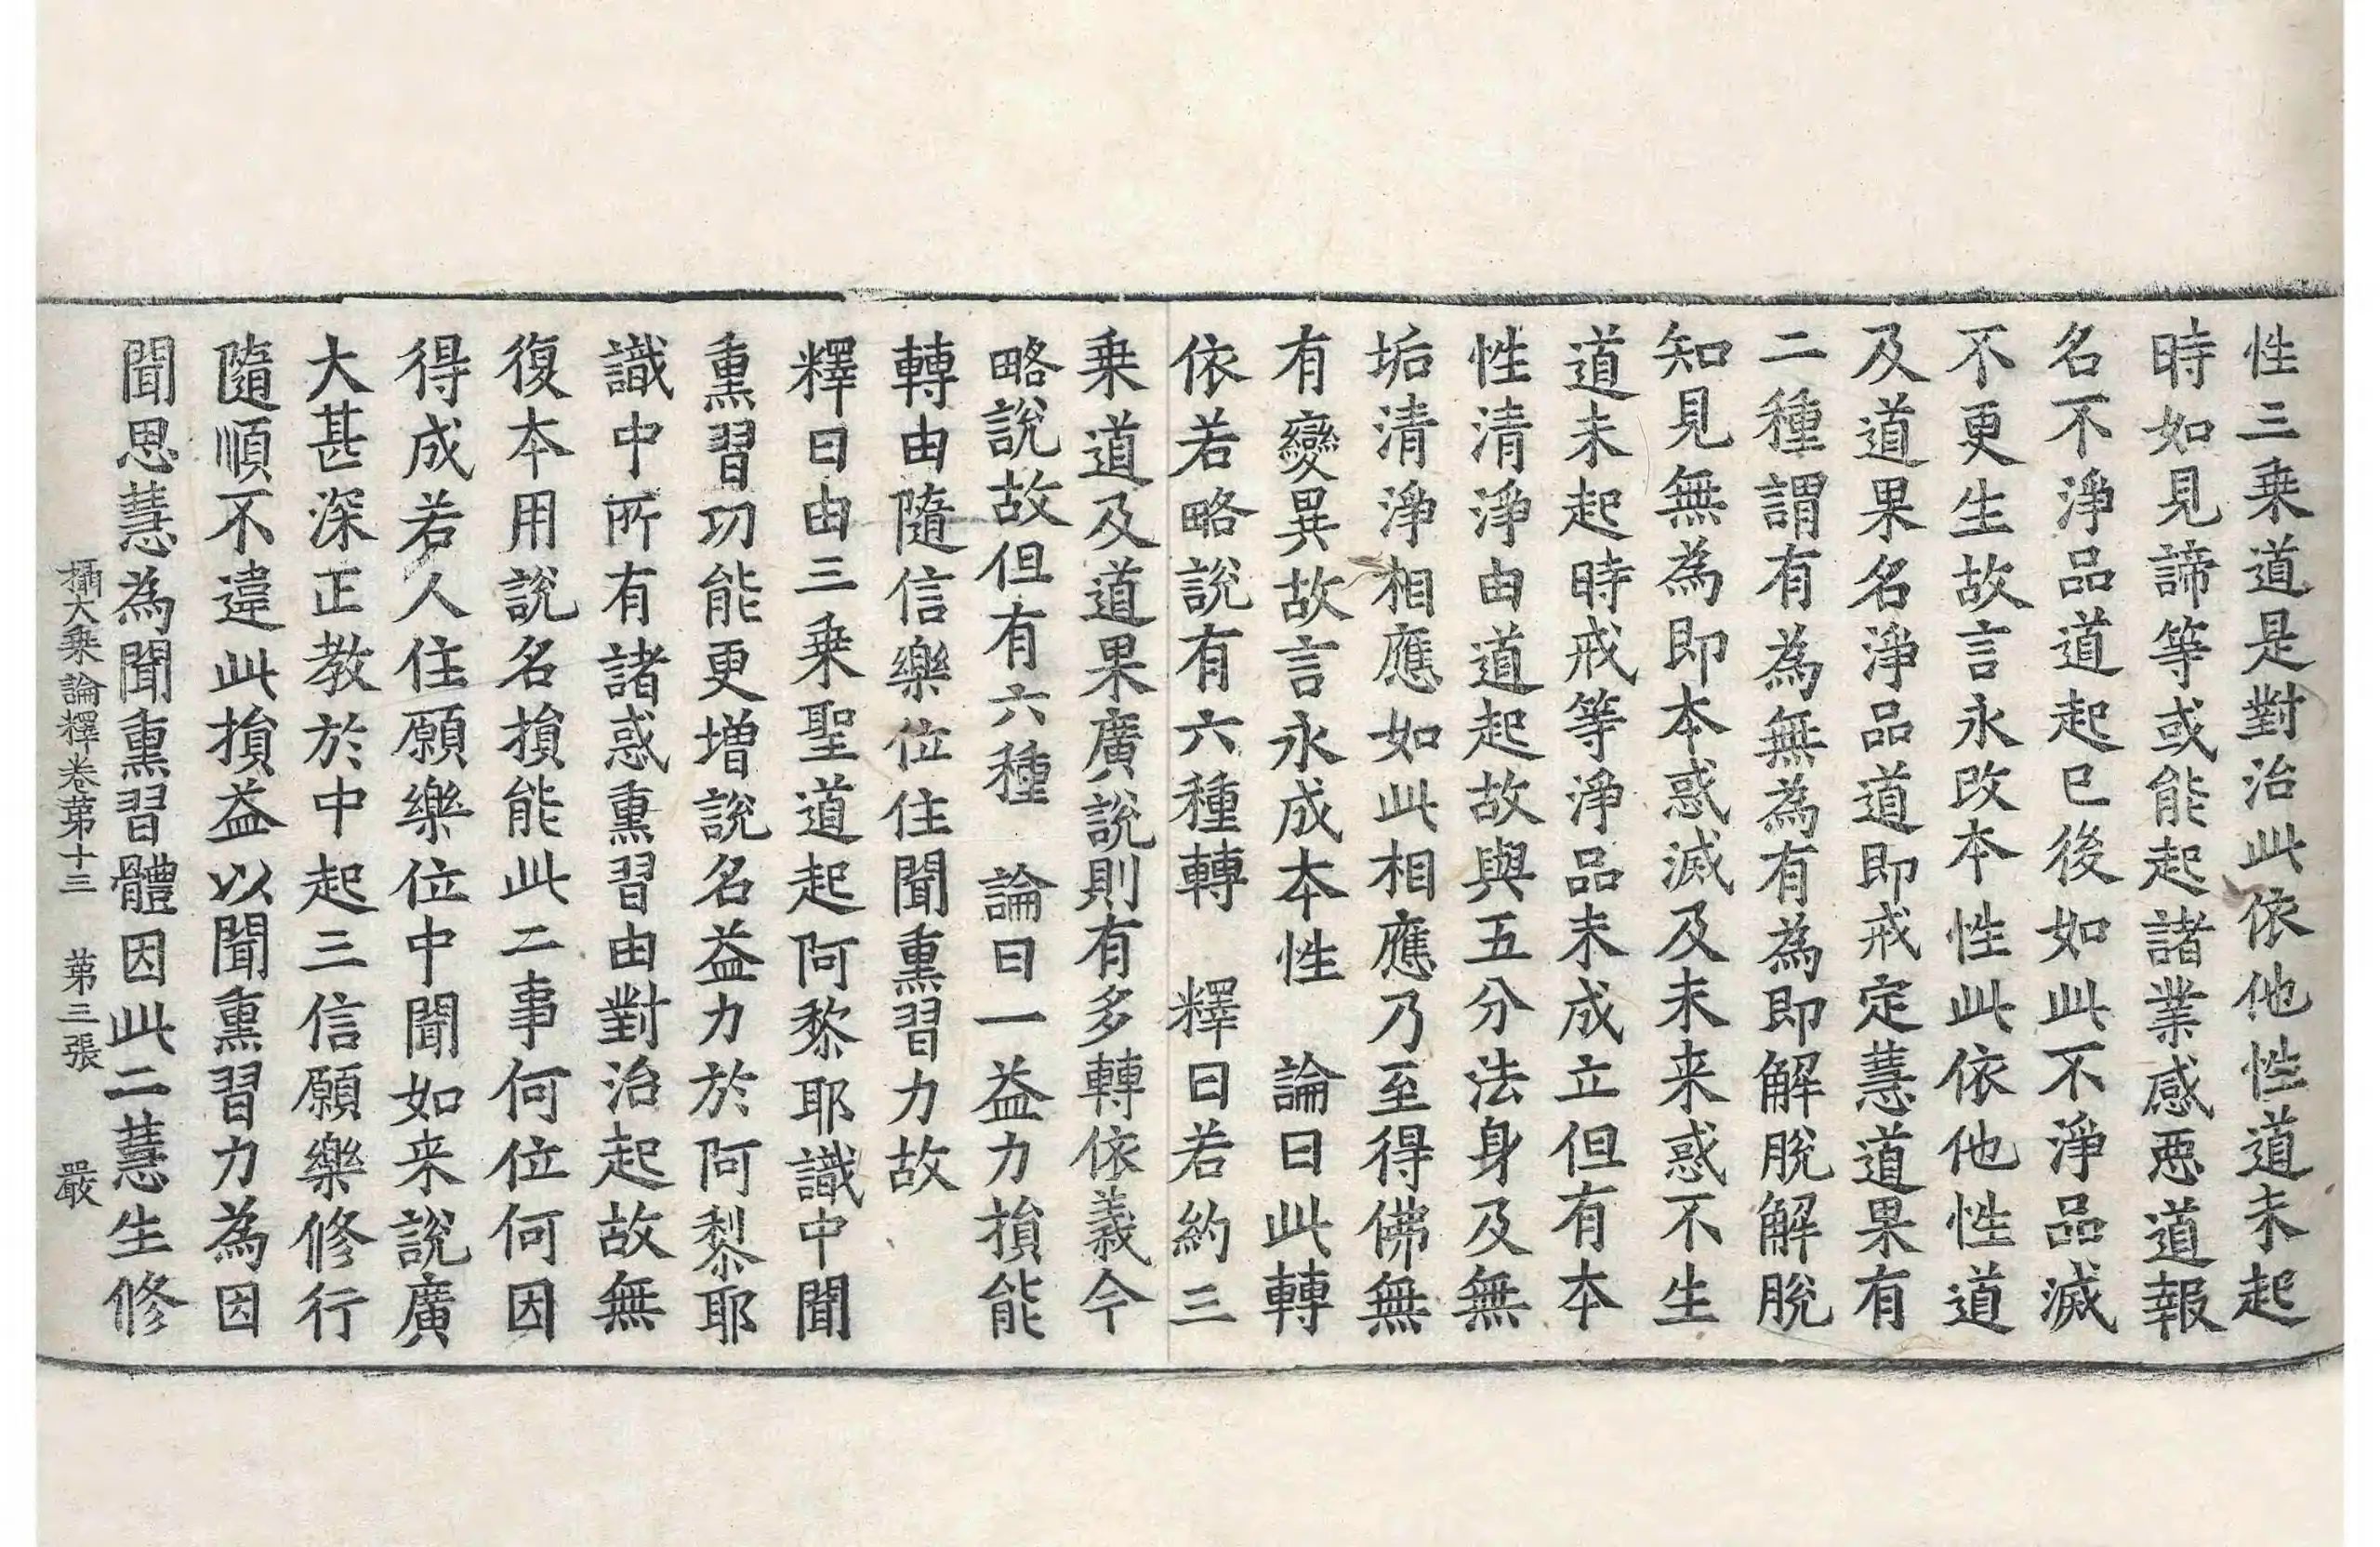 性三乗道是對治此依他性道未起
時如見諦等或能起諸業感惡道報
名不淨品道起已後如此不淨品滅
不更生故言永改本性此依他性道
及道果名淨品道即戒定慧道果有
二種謂有為無為有為即解脫解脫
知見無為即本惑滅及未来惑不生
道未起時戒等淨品未成立但有本
性清淨由道起故與五分法身及無
垢清淨相應如此相應乃至得佛無
有變異故言永成本性　論曰此轉
依若略說有六種轉　釋曰若約三
乗道及道果廣說則有多轉依義今
略說故但有六種　論曰一益力損能
轉由隨信樂位住聞熏習力故
釋曰由三乗聖道起阿黎耶識中聞
熏習功能更增說名益力於阿梨耶
識中所有諸惑熏習由對治起故無
復本用說名損能此二事何位何因
得成若人住願樂位中聞如来說廣
大甚深正教於中起三信願樂修行
隨順不違此損益以聞熏習力為因
聞思慧為聞熏習體因此二慧生修
攝大乗論釋卷第十三　第三張　嚴